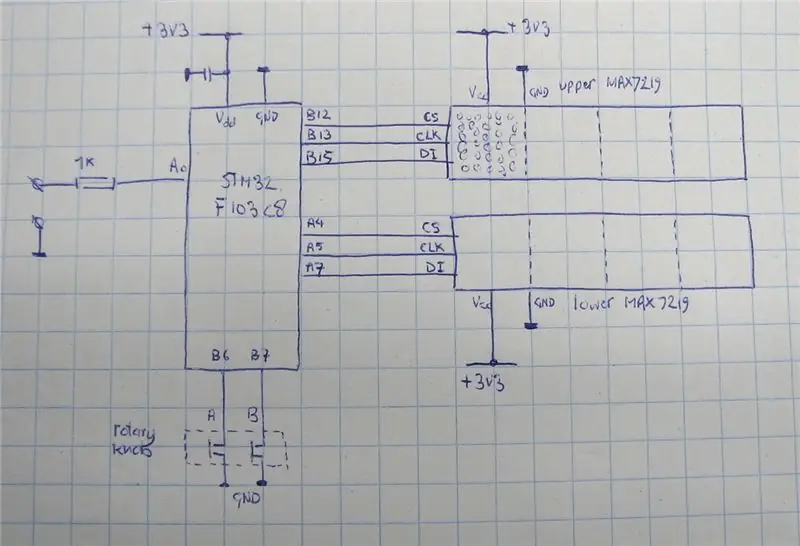 +3V3
Vdd GND
1K
A0
STM32
F103C8
B12 CS
B13 CLK
B15 DI
A4 CS
A5 CLK
A7 DI
B6 B7
A B
rotary
knob
GND
+3V3
Vcc GND upper MAX7219
Vcc GND lower MAX7219
+3V3